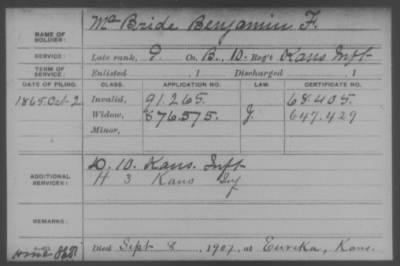 NAME OF SOLDIER: McBride Benjamin F.
SERVICE: Late rank, P. Co. B., 10. Reg't Kans Inft
TERM OF SERVICE: Enlisted , 1 Discharged , 1
DATE OF FILING. CLASS. APPLICATION NO. LAW. CERTIFICATE NO.
1865 Oct-2 Invalid, 91.265. 68.405.
Widow, 876.575. J. 647.429
Minor,
D. 10. Kans. Inft
ADDITIONAL SERVICES: H 3 Kans Inf
REMARKS:
Died Sept 8, 1907, at Eureka, Kans.